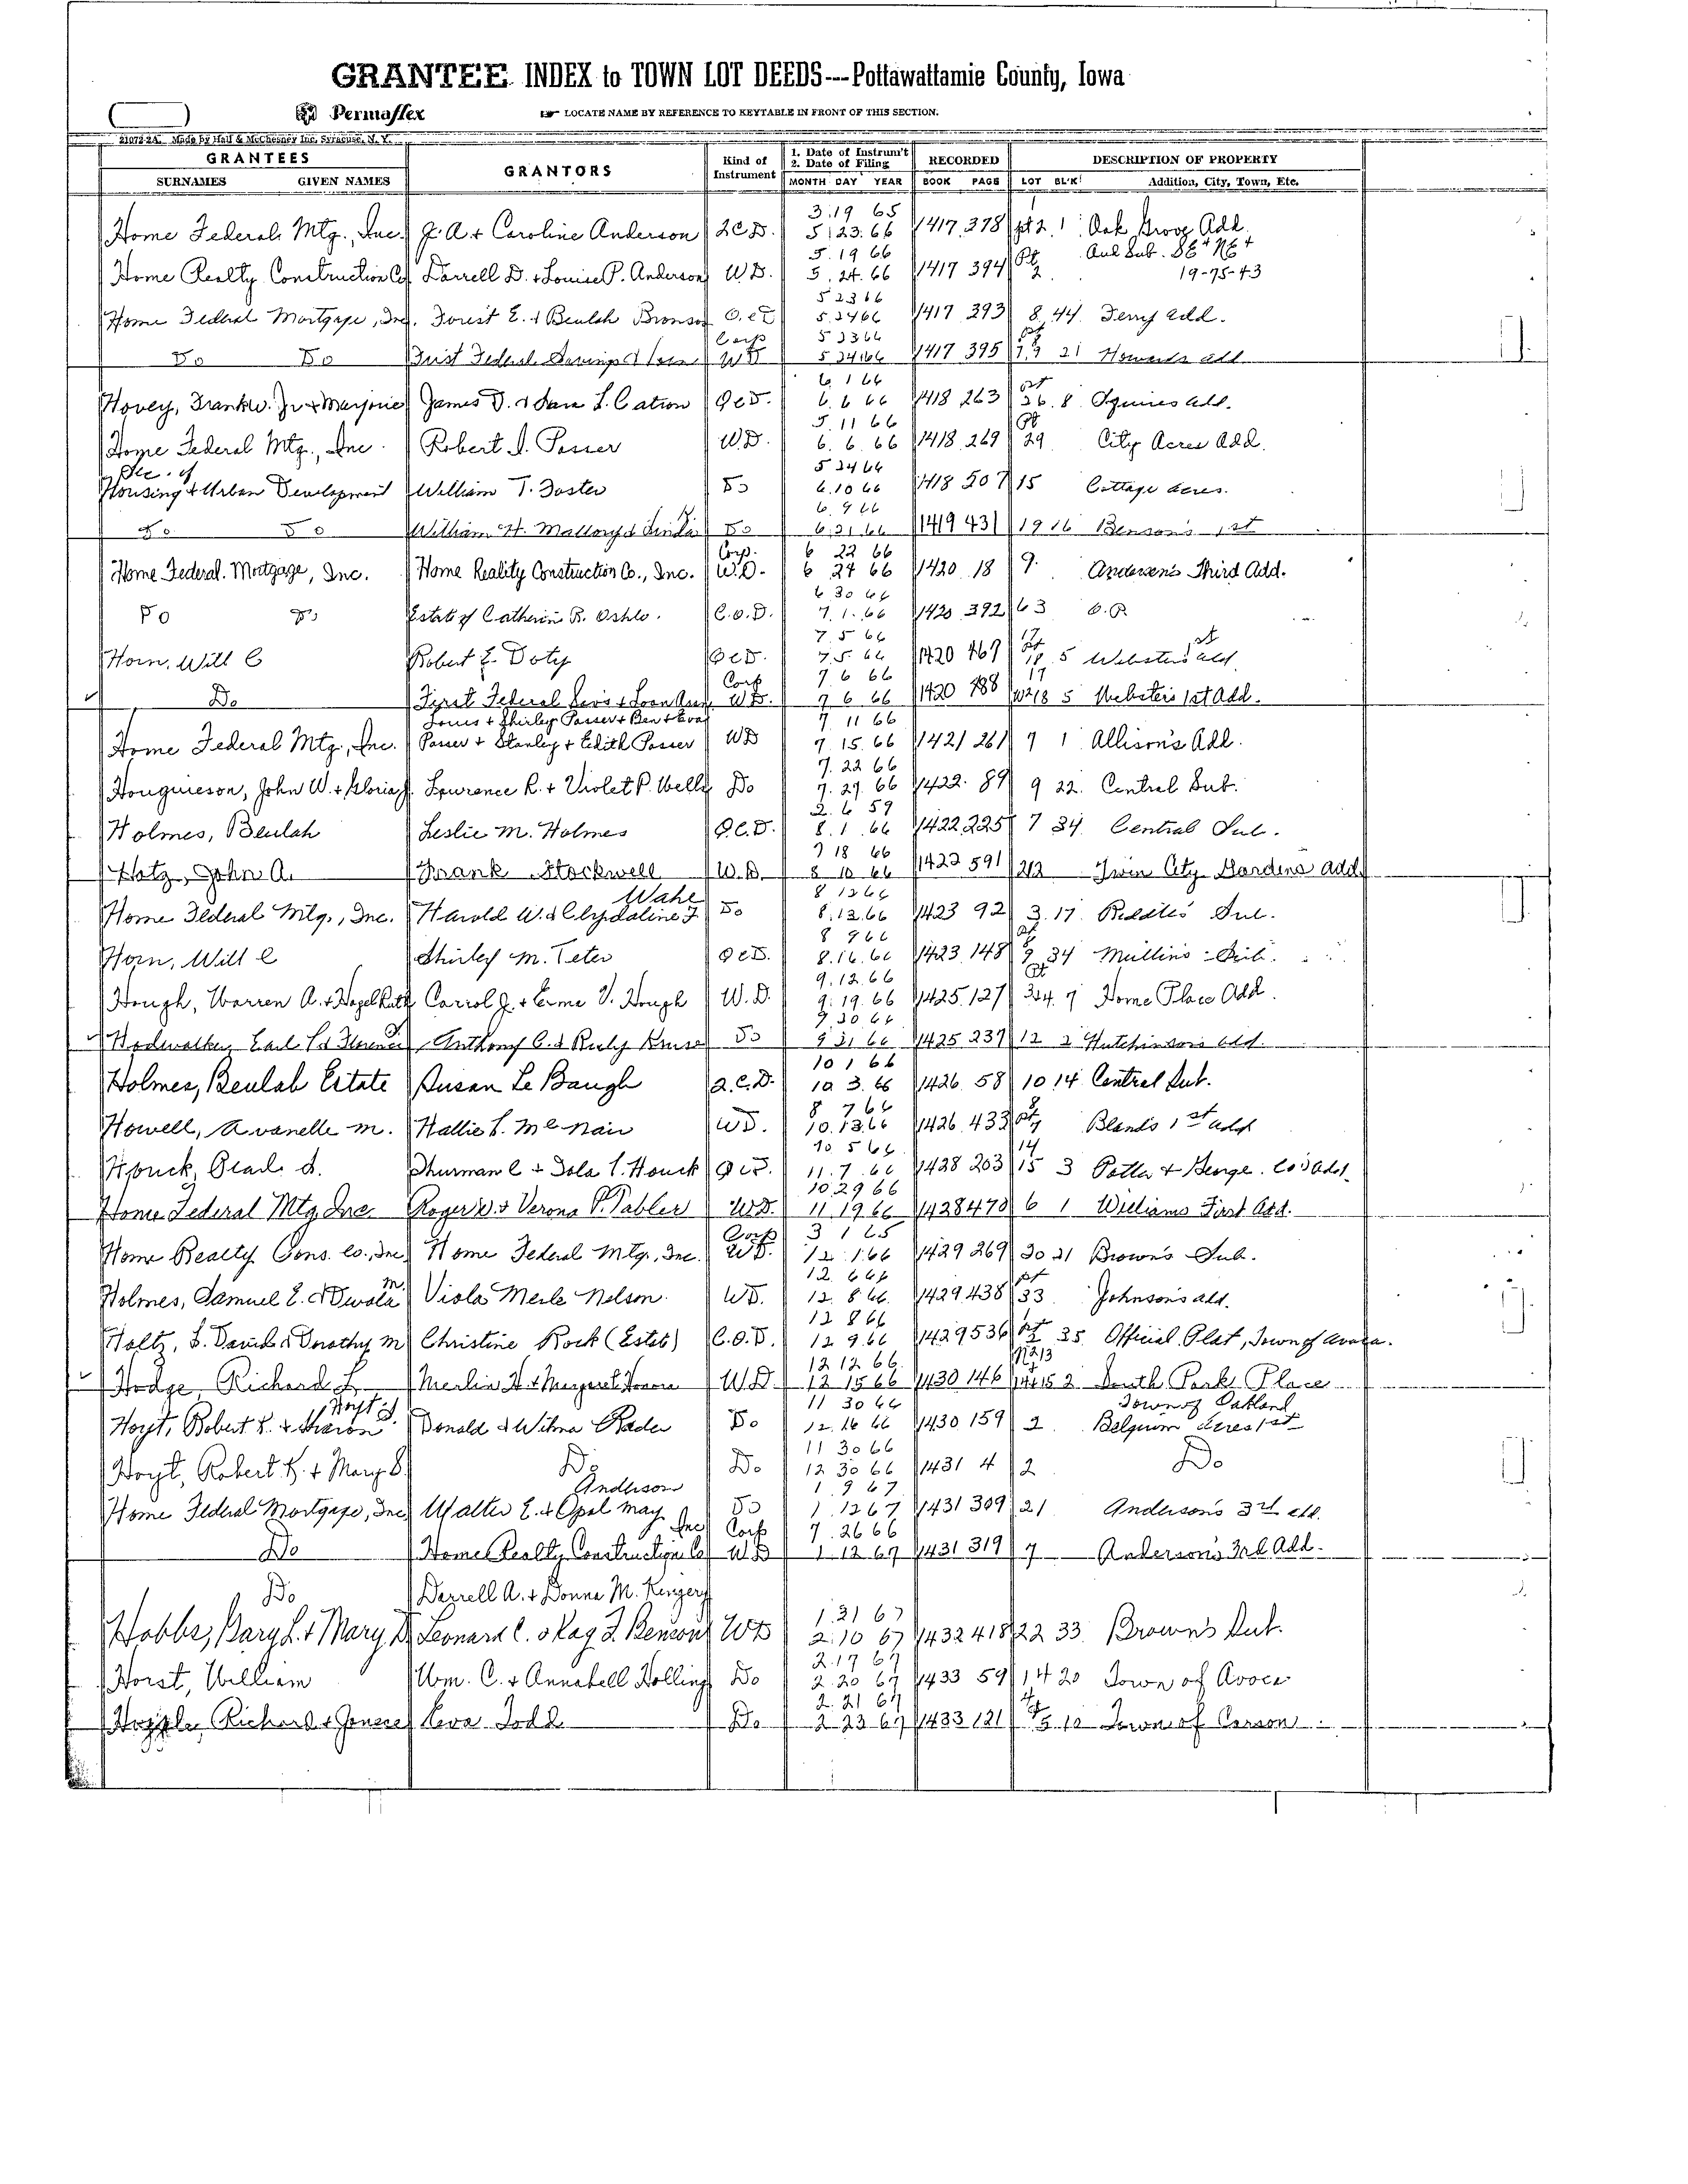 GRANTEE INDEX to TOWN LOT DEEDS---Pottawattamie County, Iowa
Permaflex LOCATE NAME BY REFERENCE TO KEYTABLE IN FRONT OF THIS SECTION.
Made by Hall & McChesney Inc. Syracuse, N. Y.
GRANTEES GRANTORS Kind of Instrument 1. Date of Instrum't 2. Date of Filing RECORDED DESCRIPTION OF PROPERTY
SURNAMES GIVEN NAMES MONTH DAY YEAR BOOK PAGE LOT BL'K Addition, City, Town, Etc.
3 19 65
Home Federal Mtg., Inc. J. A. + Caroline Anderson 2CD. 5 23 66 1417 378 pt 2 1 Oak Grove Add.
5 19 66 Aud Sub. SE4 NE4
Home Realty Construction Co Darrell D. + Louise P. Anderson W.D. 5 24 66 1417 394 Pt 2 19-75-43
5 23 66
Home Federal Mortgage, Inc. Forest E. + Beulah Bronson Q.C.D 5 24 66 1417 393 8 44 Ferry Add.
Corp 5 23 66
Do Do First Federal Savings & Loan WD 5 24 66 1417 395 21 Howards Add
6 1 66
Hovey, Frank W. Jr + Marjorie James D. + Jan L. Cation QCD. 6 6 66 1418 263 pt 36 8 Squires Add.
5 11 66
Home Federal Mtg., Inc. Robert I. Passer W.D. 6 6 66 1418 269 Pt 29 City Acres Add.
Sec. of 5 24 66
Housing & Urban Development William T. Foster Do 6 10 66 1418 507 15 Cottage Acres.
6 9 66
Do Do William H. Mallory & Linda Do 6 21 66 1419 431 19 16 Benson's 1st
Corp. 6 22 66
Home Federal Mortgage, Inc. Home Reality Construction Co., Inc. W.D. 6 24 66 1420 18 9 Andersen's Third Add.
6 30 66
Do Do Estate of Catherin B. Oshlo. C.O.D. 7 1 66 1420 392 63 O.P.
7 5 66
Horn, Will C Robert E. Doty QCD. 7 5 66 1420 469 17 Pt 18 5 Websters 1st Add.
Corp 7 6 66 17
Do First Federal Savs & Loan Assn WD. 7 6 66 1420 488 W2 18 5 Webster's 1st Add.
Louis + Shirley Passer + Ben + Eva 7 11 66
Home Federal Mtg., Inc. Passer + Stanley + Edith Passer WD 7 15 66 1421 261 9 1 Allison's Add.
7 22 66
Houguieson, John W. + Gloria J. Lawrence R. + Violet P. Wells Do 7 29 66 1422 89 9 22 Central Sub.
2 6 59
Holmes, Beulah Leslie M. Holmes Q.C.D. 8 1 66 1422 225 7 34 Central Sub.
7 18 66
Hotz, John A. Frank Stockwell W.D. 8 10 66 1422 591 212 Twin City Gardens Add
Wahe 8 12 66
Home Federal Mtg., Inc. Harold W. & Clydaline J Do 8 12 66 1423 92 3 17 Riddles Sub.
8 9 66
Horn, Will C Shirley M. Teter QCD. 8 16 66 1423 148 34 Mullins Sub.
9 12 66
Hough, Warren A. + Hazel Ruth Carrol J. + Erma V. Hough W.D. 9 19 66 1425 127 Pt 3 & 4 9 Home Place Add.
9 20 66
Hodwalker, Earl Anthony C. & Ruby Kruse Do 9 21 66 1425 237 12 2 Hutchinsons Add.
10 1 66
Holmes, Beulah Estate Susan Le Baugh Q.C.D. 10 3 66 1426 58 10 14 Central Sub.
8 7 66
Howell, Avanelle M. Hallie L. McNair WD. 10 13 66 1426 433 pt 7 Blands 1st Add
10 5 66 14
Houck, Pearl A. Thurman C + Iola L. Houck QCD. 11 7 66 1428 203 15 3 Potter &
10 29 66
Home Federal Mtg. Inc. Roger W. & Verona P. Tabler WD. 11 19 66 1428 478 6 1 Williams First Add.
Corp 3 1 65
Home Realty Cons. Co., Inc. Home Federal Mtg., Inc. WD. 12 1 66 1429 269 30 21 Brown's Sub.
M. 12 6 66
Holmes, Samuel E. & Dwola Viola Merle Nelson WD. 12 8 66 1429 438 pt 33 Johnsons Add.
12 8 66
Holtz, D. David & Dorothy M Christine Rock (Estate) C.O.D. 12 9 66 1429 536 Pt 2 35 Official Plat, Town of Avoca.
12 12 66
Hodge, Richard L. Merlin H. + Margaret W.D. 12 15 66 1430 146 2 South Park Place
Hoyt 11 30 66 Town of Oakland
Hoyt, Robert K. & Sharon J. Donald & Wilma Rader Do 12 16 66 1430 159 2 Belgium Acres 1st
11 30 66
Hoyt, Robert K. + Mary B. Do Do 12 30 66 1431 4 2 Do
Anderson 1 9 67
Home Federal Mortgage, Inc Walter E. + Opal May Do 1 12 67 1431 309 21 Anderson's 3rd Add.
Inc Corp 7 26 66
Do Home Realty Construction Co WD 1 12 67 1431 319 7 Anderson's 3rd Add.
Do Darrell A. + Donna M. Kinzery
1 31 67
Hobbs, Gary L. + Mary D. Leonard C. & Kay J. Benson WD 2 10 67 1432 418 22 33 Brown's Sub.
2 17 67
Horst, William Wm. C. + Annabell Holling Do 2 20 67 1433 59 14 20 Town of Avoca
2 21 67
Hozzle, Richard & Reva Todd Do 2 23 67 1433 121 10 Town of Carson